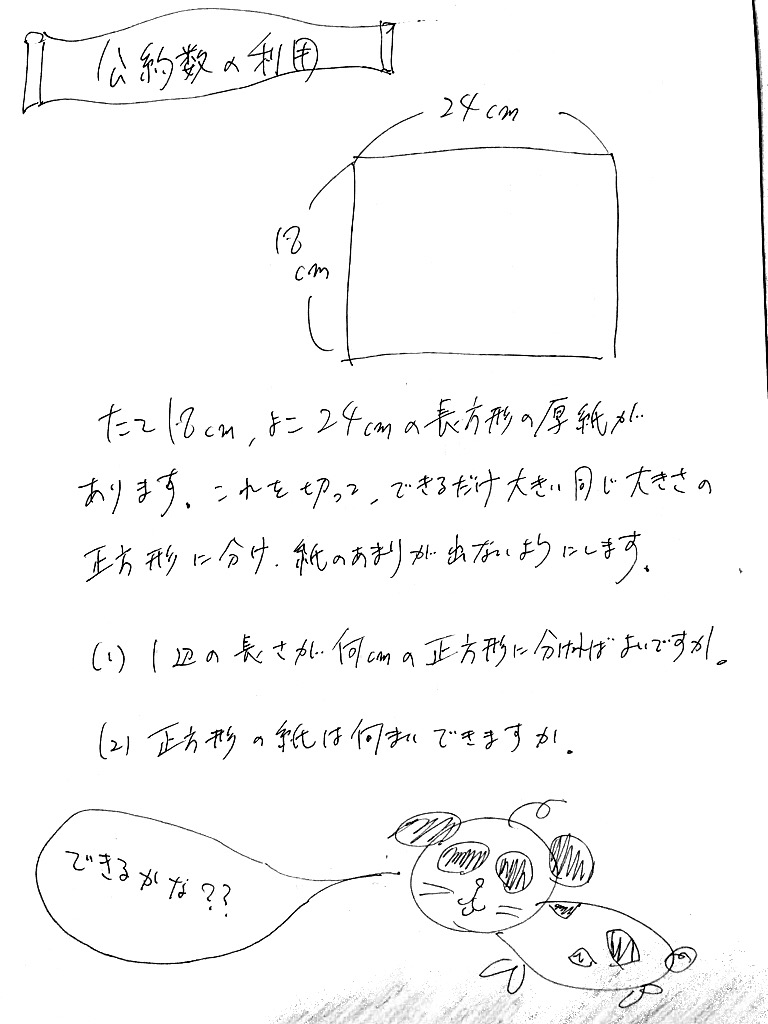 公約数の利用
24cm
18
cm
たて18cm,よこ24cmの長方形の厚紙が
あります。これを切って、できるだけ大きい同じ大きさの
正方形に分け、紙のあまりが出ないようにします。
(1) 1辺の長さが何cmの正方形に分ければよいですか。
(2) 正方形の紙は何まいできますか。
できるかな??